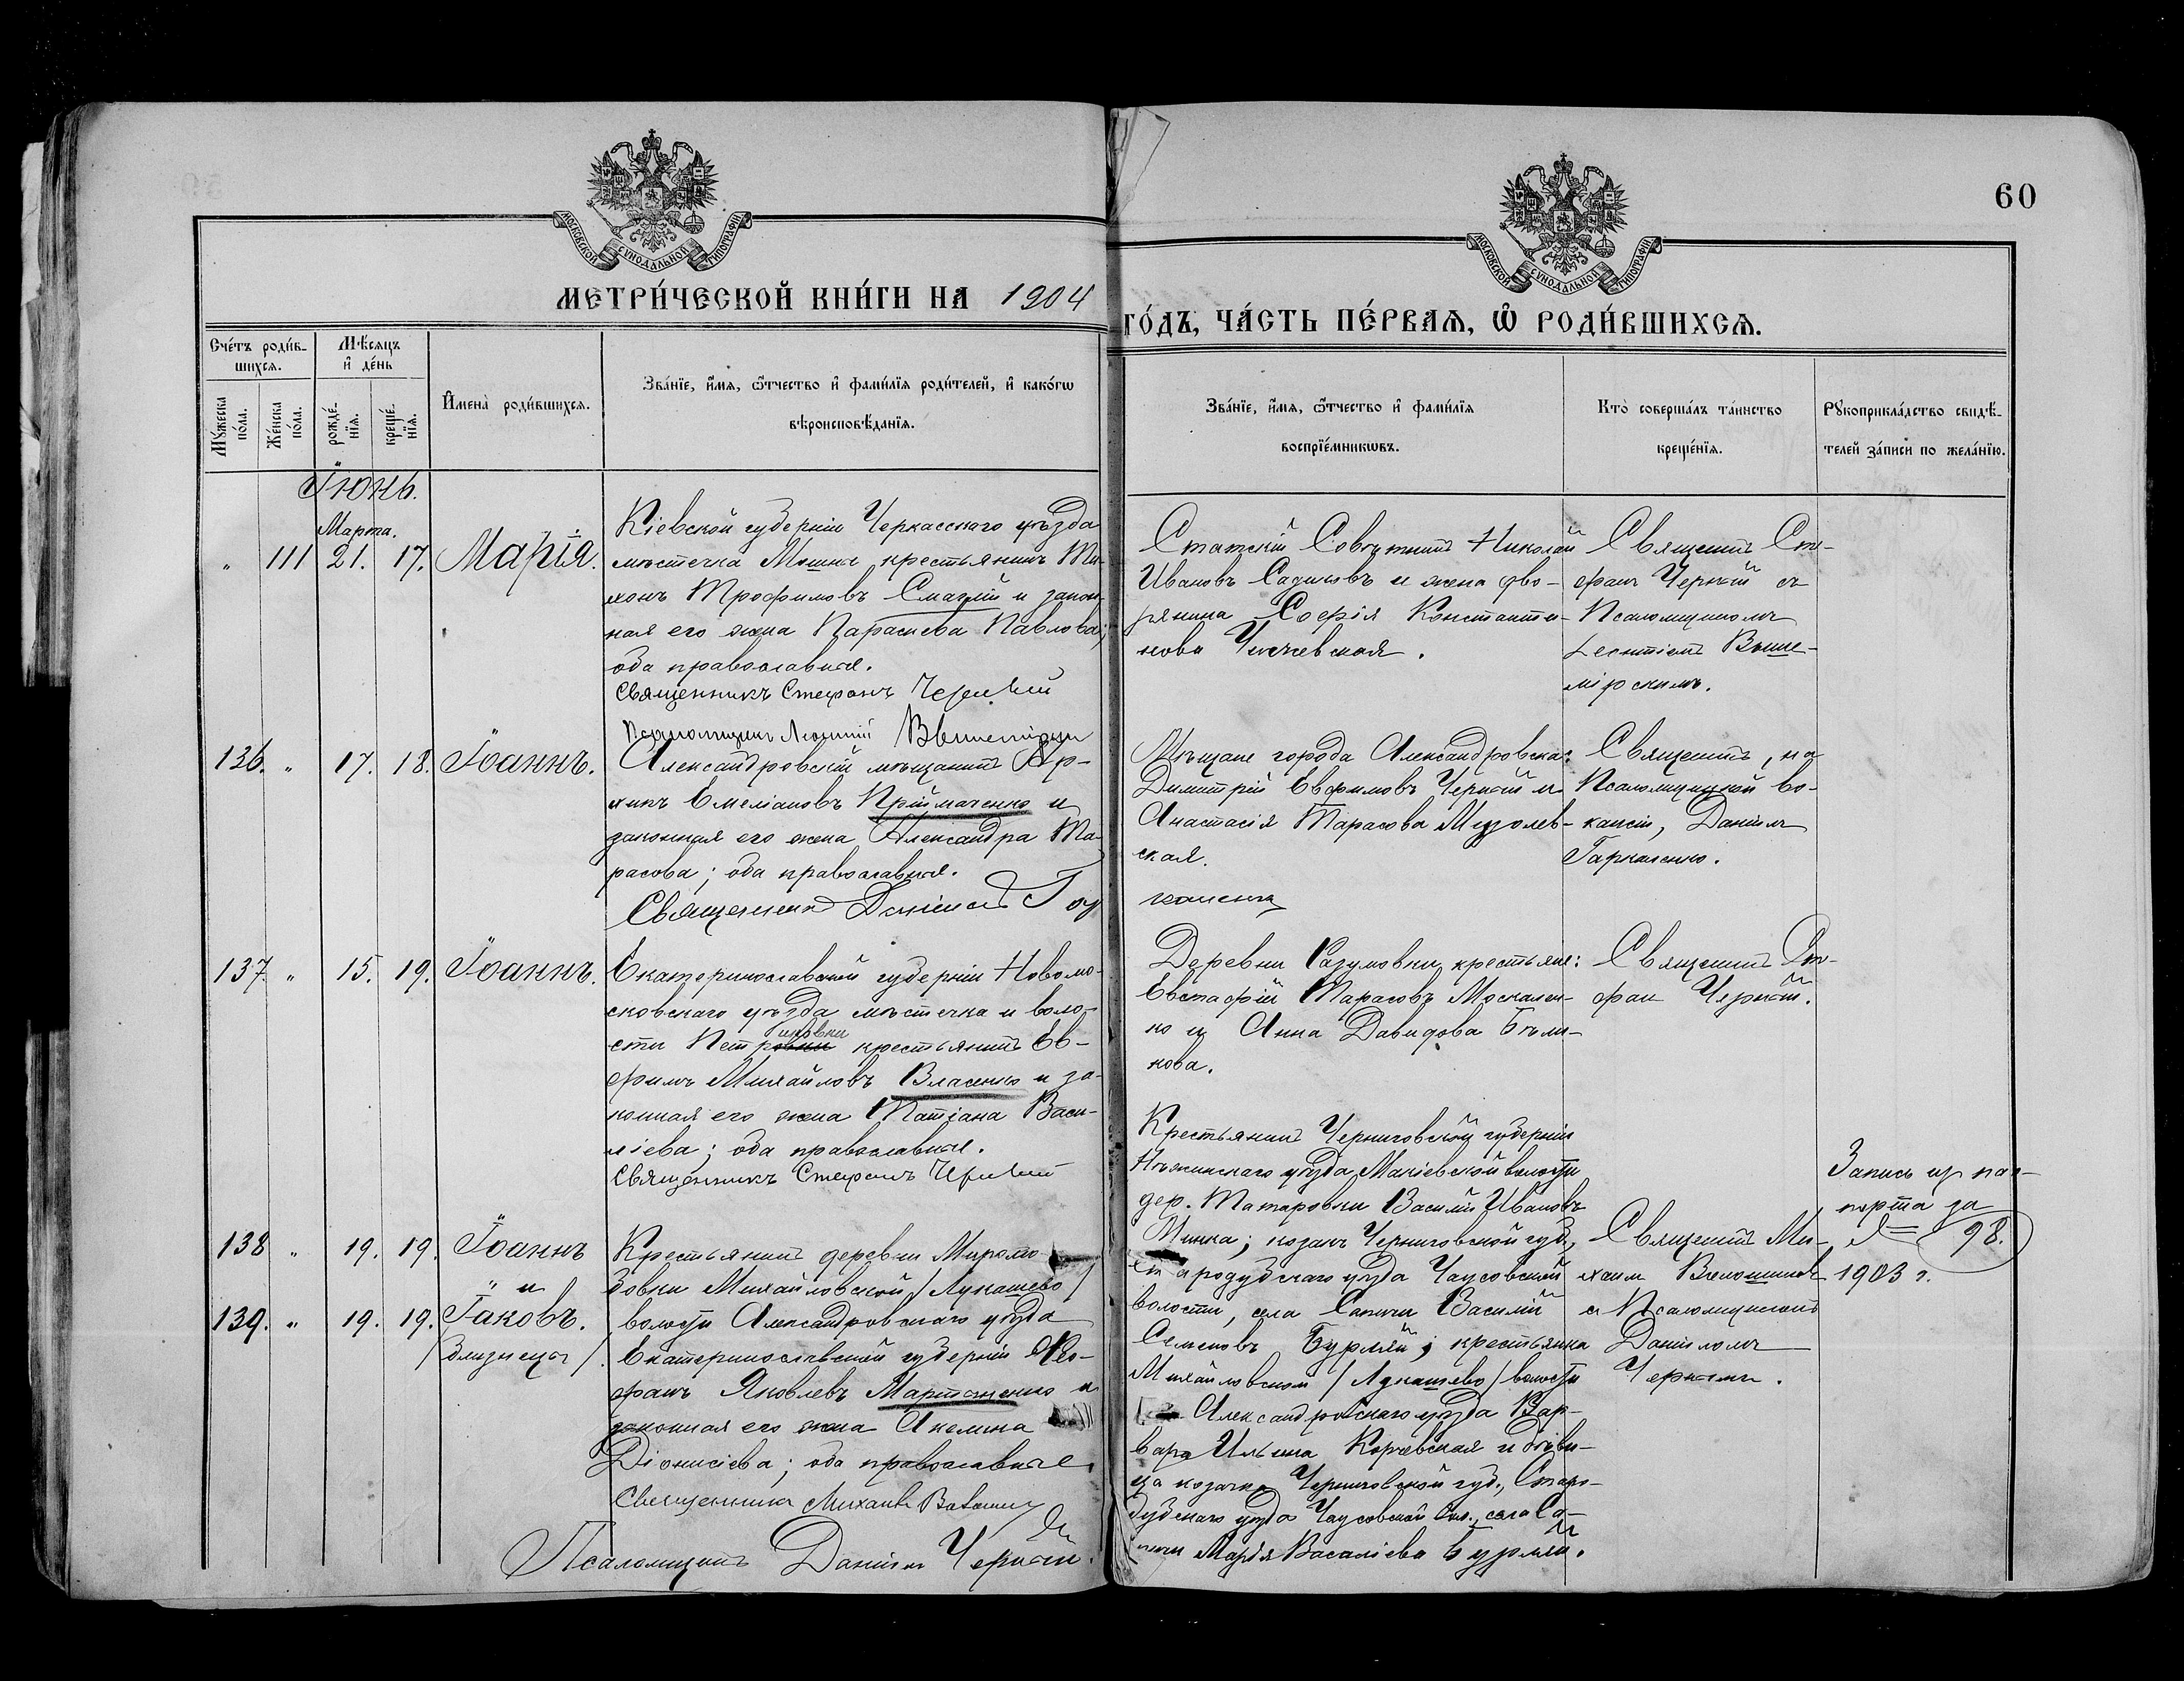 60
МОСКОВСКОЙ СѴНОДАЛЬНОЙ ТИПОГРАФІИ
МОСКОВСКОЙ СѴНОДАЛЬНОЙ ТИПОГРАФІИ
МЕТРИ́ЧЕСКОЙ КНИ́ГИ НА 1904
ГО́ДЪ, ЧА́СТЬ ПЕ́РВАѦ, Ѡ҆ РОДИ́ВШИХСѦ.
Сче́тъ роди́в-
шихсѧ.
Му́жеска по́ла.
Же́нска по́ла.
Мѣ́сѧцъ
и҆ де́нь
рожде́-
нїѧ.
креще́-
нїѧ.
И҆мена̀ роди́вшихсѧ.
Зва́нїе, и҆́мѧ, ѻ҆́тчество и҆ фами́лїѧ роди́телей, и҆ како́гѡ
вѣроисповѣ́данїѧ.
Зва́нїе, и҆́мѧ, ѻ҆́тчество и҆ фами́лїѧ
воспрїе́мникѡвъ.
Кто̀ соверша́лъ та́инство
креще́нїѧ.
Рꙋкоприкла́дство свидѣ́-
телей за́писи по жела́нїю.
Іюнь.
Марта.
" 111 21. 17. Марія.
Кіевской губерніи Черкасскаго уѣзда
мѣстечка Мошнъ крестьянинъ Ти-
хонъ Трофимовъ Смаглій и закон-
ная его жена Параскева Павлова;
оба православные.
Священникъ Стефанъ Черный
Псаломщикъ Леонтій Вышемірскій
Статскій Совѣтникъ Николай
Ивановъ Садиковъ и жена дво-
рянина Софія Константи-
нова
Священникъ Сте-
фанъ Черный съ
Псаломщикомъ
Леонтіемъ Выше-
мірскимъ.
136. " 17. 18. Іоаннъ.
Александровскій мѣщанинъ Ар-
хипъ Емеліановъ Пріймаченко и
законная его жена Александра Та-
расова; оба православные.
Священникъ Даніилъ Гар
каленко
Мѣщане города Александровска:
Димитрій Евфимовъ Черный и
Анастасія Тарасова
ская.
Священникъ, на
Псаломщицкой ва-
кансіи, Даніилъ
Гаркаленко.
137. " 15. 19. Іоаннъ.
Екатеринославской губерніи Новомо-
сковскаго уѣзда мѣстечка и воло-
сти Петриковки крестьянинъ Ев-
фимъ Михайловъ Власенко и за-
конная его жена Татіана Васи-
ліева; оба православные.
Священникъ Стефанъ Черный
Деревни Разумовки крестьяне:
Евстафій Тарасовъ Москален-
ко и Анна Давидова Бѣли-
кова.
Священникъ Сте-
фан Черный.
138 " 19. 19. Іоаннъ
" и
139. " 19. 19. Іаковъ.
/близнецы/.
Крестьянинъ деревни
Михайловской /Лукашево/
волости Александровскаго уѣзда
Екатеринославской губерніи Ѳео-
фанъ Яковлевъ Мартыненко и
законная его жена Акилина
Діонисіева; оба православные.
Священникъ Михаилъ
Псаломщикъ Даніилъ Черный.
Крестьянинъ Черниговской губерніи
Нѣжинскаго уѣзда Макіевской волости
дер. Татаровки Василій Ивановъ
Минка; козакъ Черниговской губ.,
Стародубскаго уѣзда Чаусовской
волости, села Сапычи Василій
Семеновъ Бурляй; крестьянка
Михайловской /Лукашево/ волости
Александровскаго уѣзда Вар-
вара Ильина Корчевская и дѣви-
ца козачка Черниговской губ., Старо-
дубскаго уѣзда Чаусовской вол., села Са-
пычи Марія Василіева Бурляй.
Священникъ Ми-
хаилъ
съ Псаломщикомъ
Даніиломъ
Чернымъ.
Запись изъ пас-
порта за
№ 98.
1903 г.